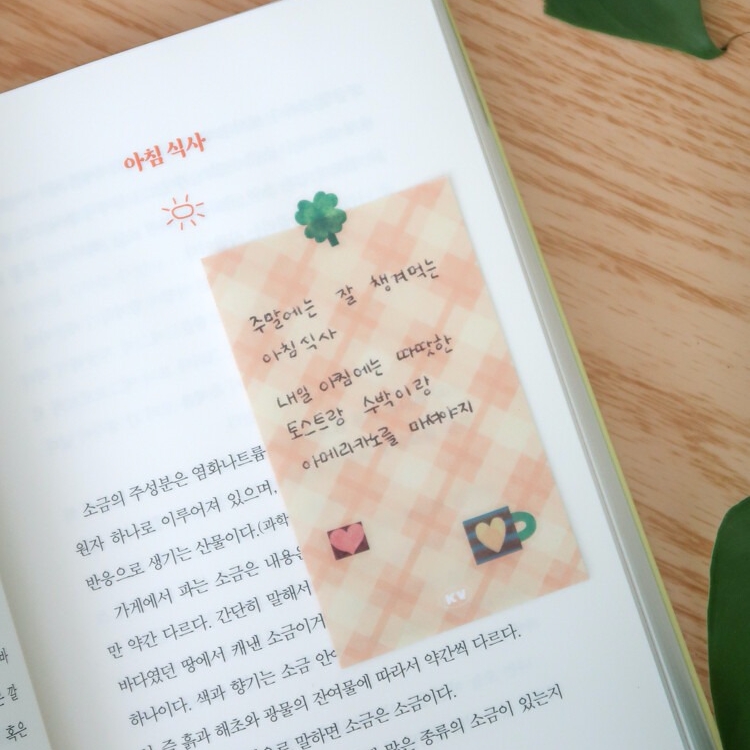 아침 식사
주말에는 잘 챙겨먹는
아침식사
내일 아침에는 따땃한
토스트랑 수박이랑
아메리카노를 마셔야지
KV
소금의 주성분은 염화나트륨
원자 하나로 이루어져 있으며,
반응으로 생기는 산물이다.(과학
가게에서 파는 소금은 내용
만 약간 다르다. 간단히 말해서
바다였던 땅에서 캐낸 소금이거
하나이다. 색과 향기는 소금 안
즉 흙과 해초와 광물의 잔여물에 따라서 약간씩 다르다.
으로 말하면 소금은 소금이다.
많은 종류의 소금이 있는지
바
깔
혹은